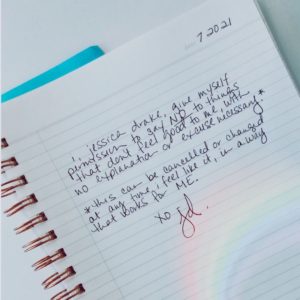 7.2021
i, jessica drake, give myself
permission to say NO to things
that don't feel good to me, with
no explanation or excuse necessary.*
*this can be cancelled or changed
at any time, i feel like it, in a way
that works for ME.
xo jd.